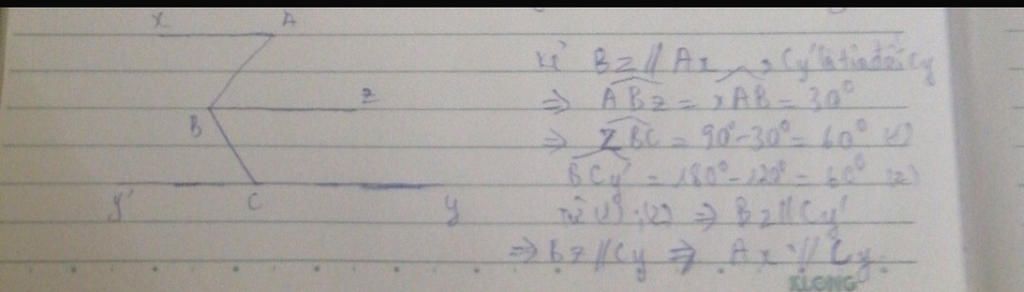 x A
B z
y' C y
Kẻ Bz // Ax, Cy' là tia đối Cy
⇒ ABz = xAB = 30°
⇒ zBC = 90° - 30° = 60° (1)
BCy' = 180° - 120° = 60° (2)
Từ (1), (2) ⇒ Bz // Cy'
⇒ Bz // Cy ⇒ Ax // Cy.
KLONG